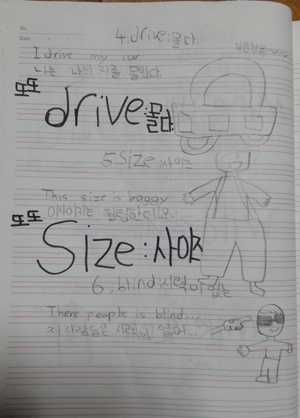 4. drive:몰다
I drive my car
나는 나의 차를 몰았다.
부릉부릉~~
또또
drive:몰다
5. Size 사이즈
This size is baggy
이 사이즈는 헐렁한데요
또또
Size:사이즈
6. blind 시력이 없는
There people is blind...
저 사람들은 시력이 없어...